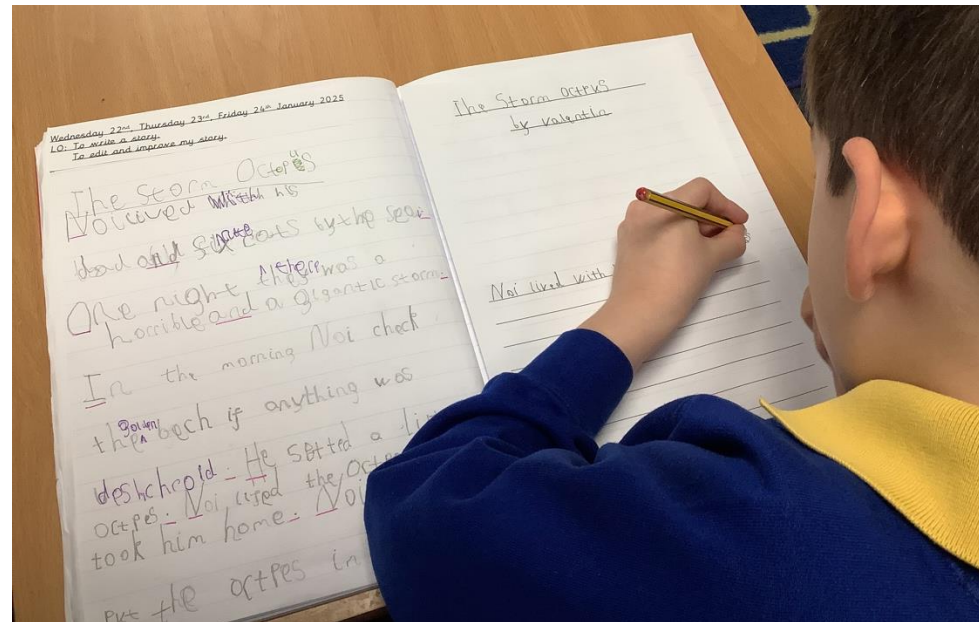 Wednesday 22nd, Thursday 23rd, Friday 24th January 2025
LO: To write a story.
To edit and improve my story.
The Storm Octopus
Noi lived with his
dad and six cats by the sea.
One night, there was a
horrible and a gigantic storm.
In the morning Noi check
the golden bech if anything was
deshchroid. He setted a
octpes. Noi the
took him home. Noi
put the octpes in
The Storm Octpus
by Valentin
Noi lived with